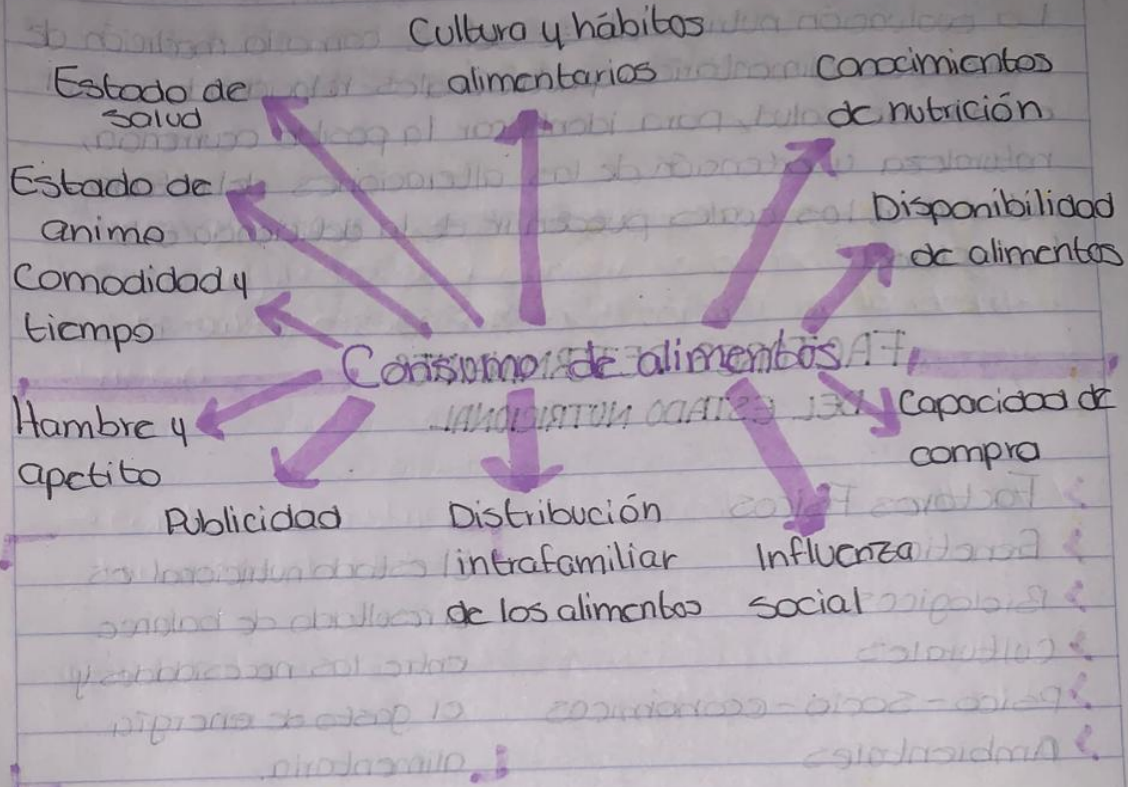 Cultura y hábitos
alimentarios
Estado de
salud
Conocimientos
de nutrición
Estado de
animo
Disponibilidad
de alimentos
Comodidad y
tiempo
Consumo de alimentos
Hambre y
apetito
Capacidad de
compra
Publicidad
Distribución
intrafamiliar
de los alimentos
Influenza
social